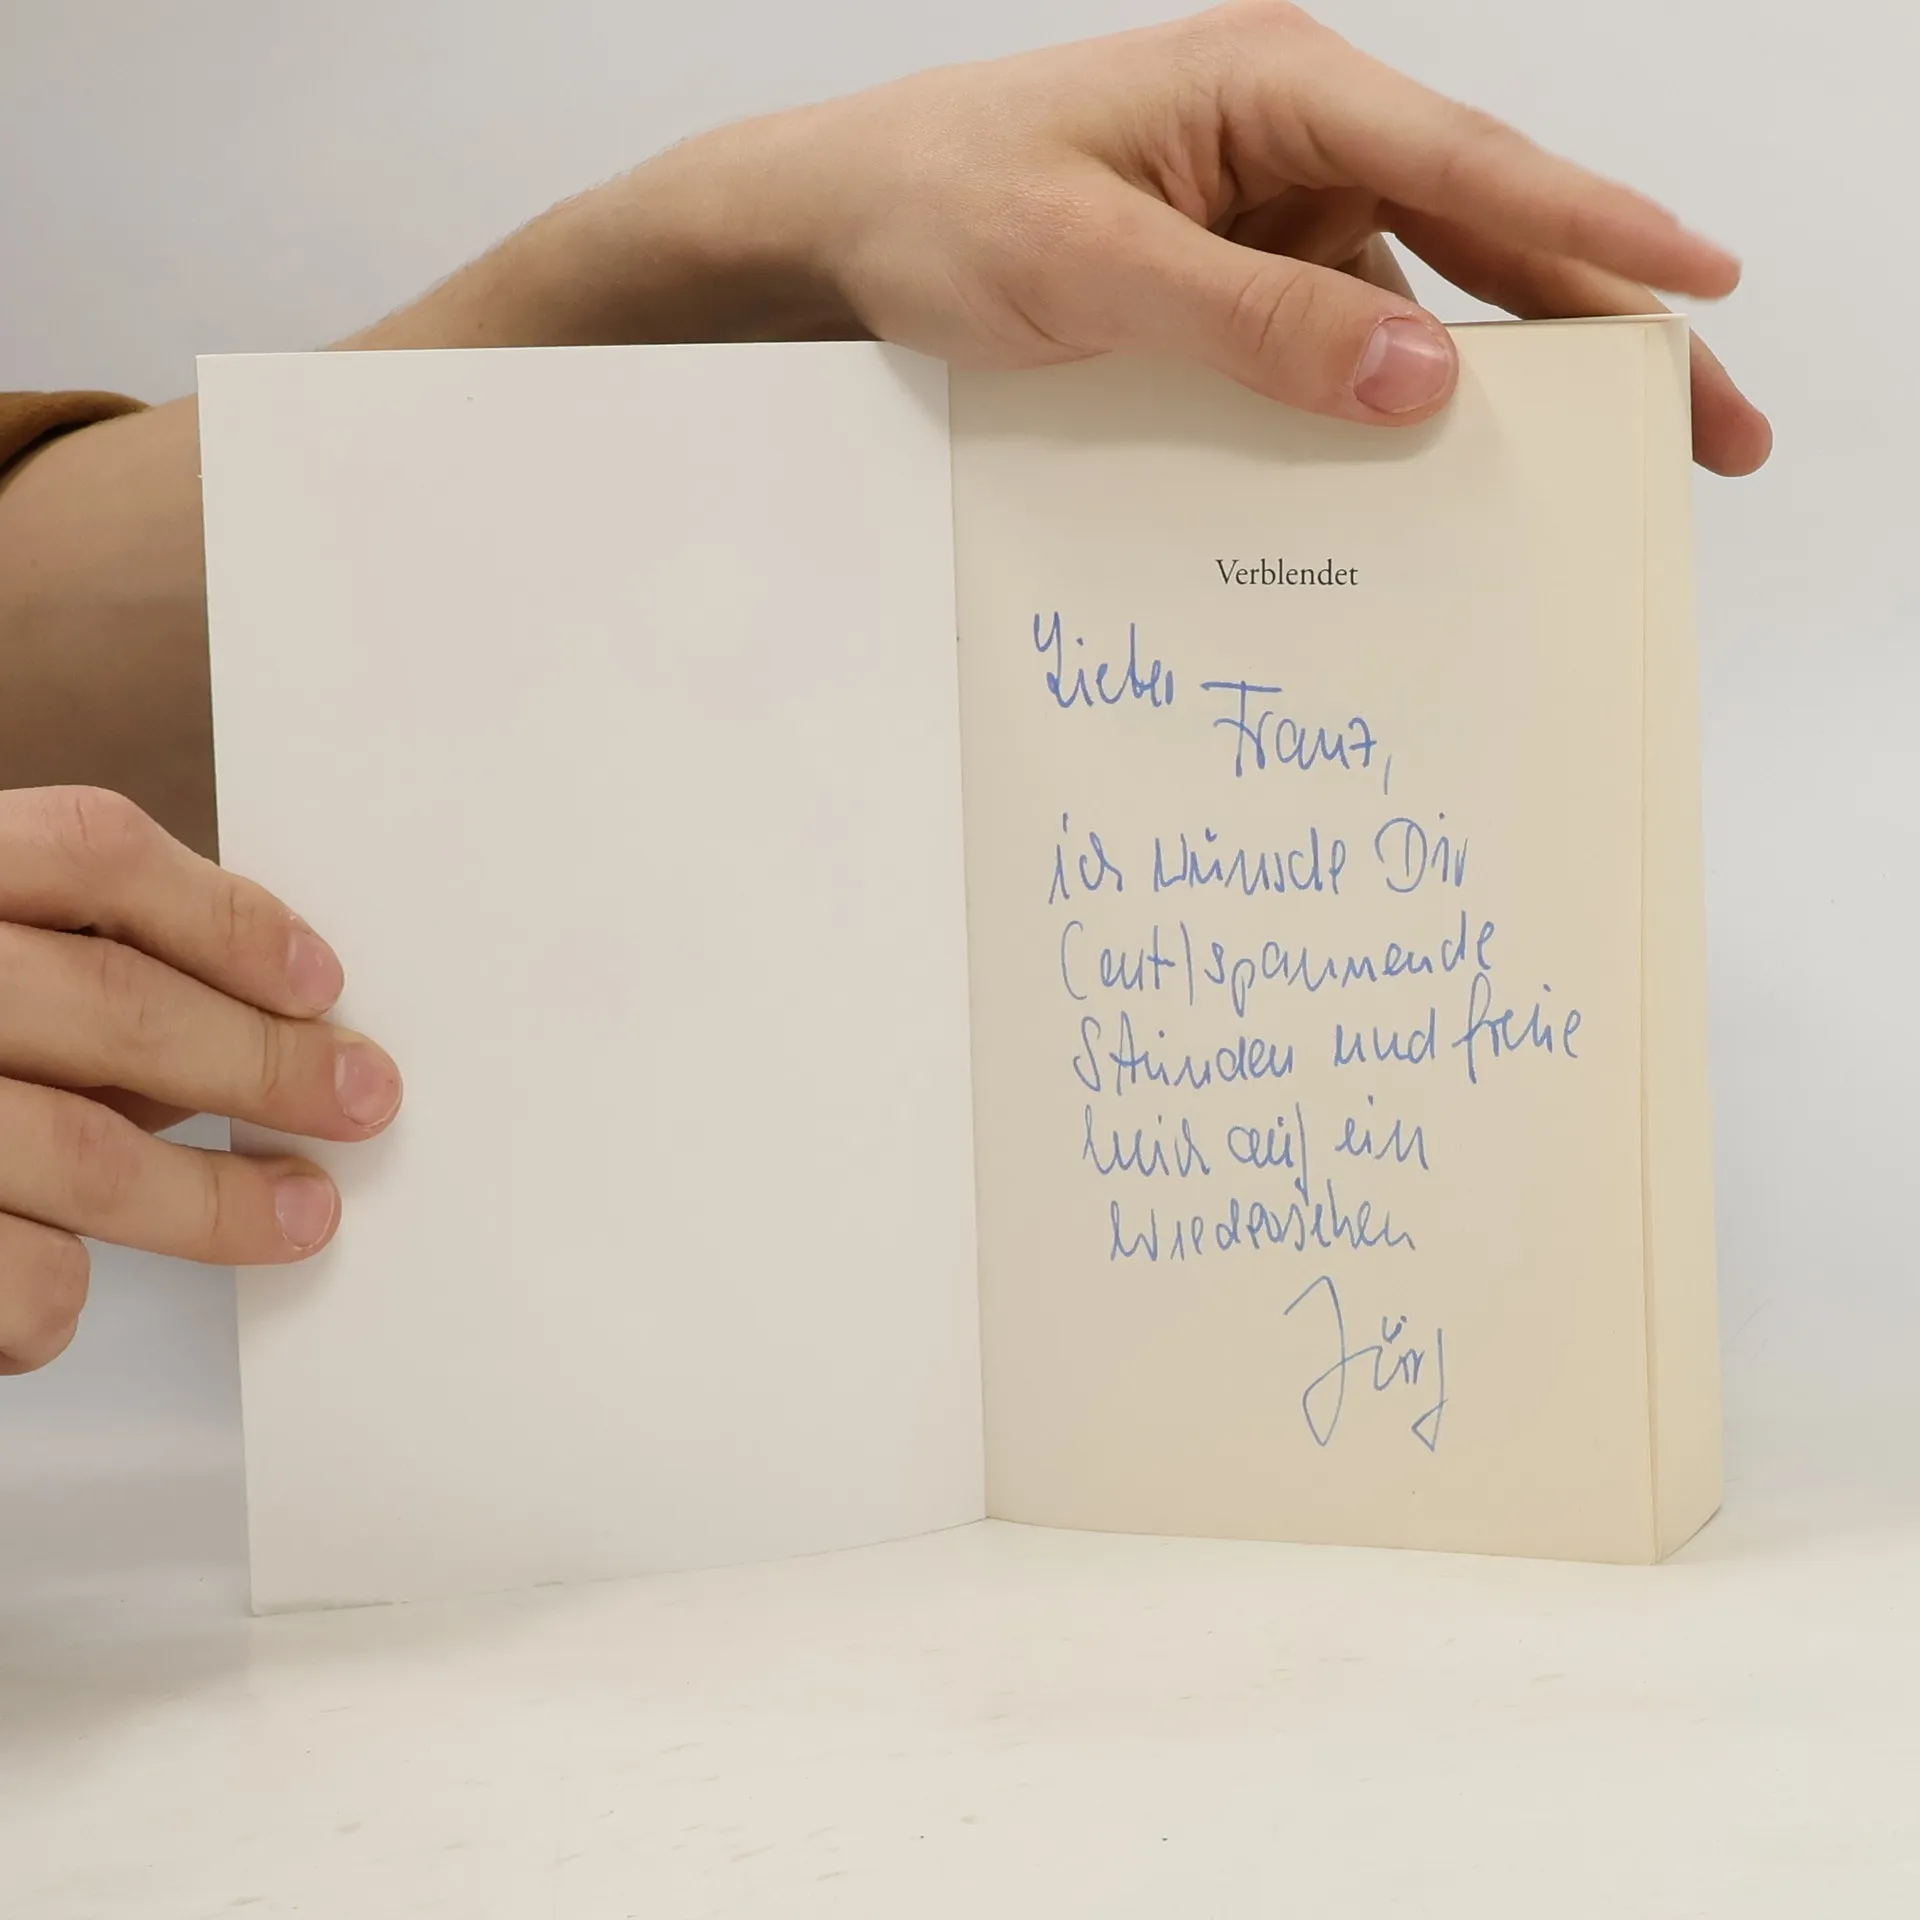 Verblendet
Lieber
Franz,
ich wünsche Dir
(ent)spannende
Stunden und freue
mich auf ein
Wiedersehen
Jürg